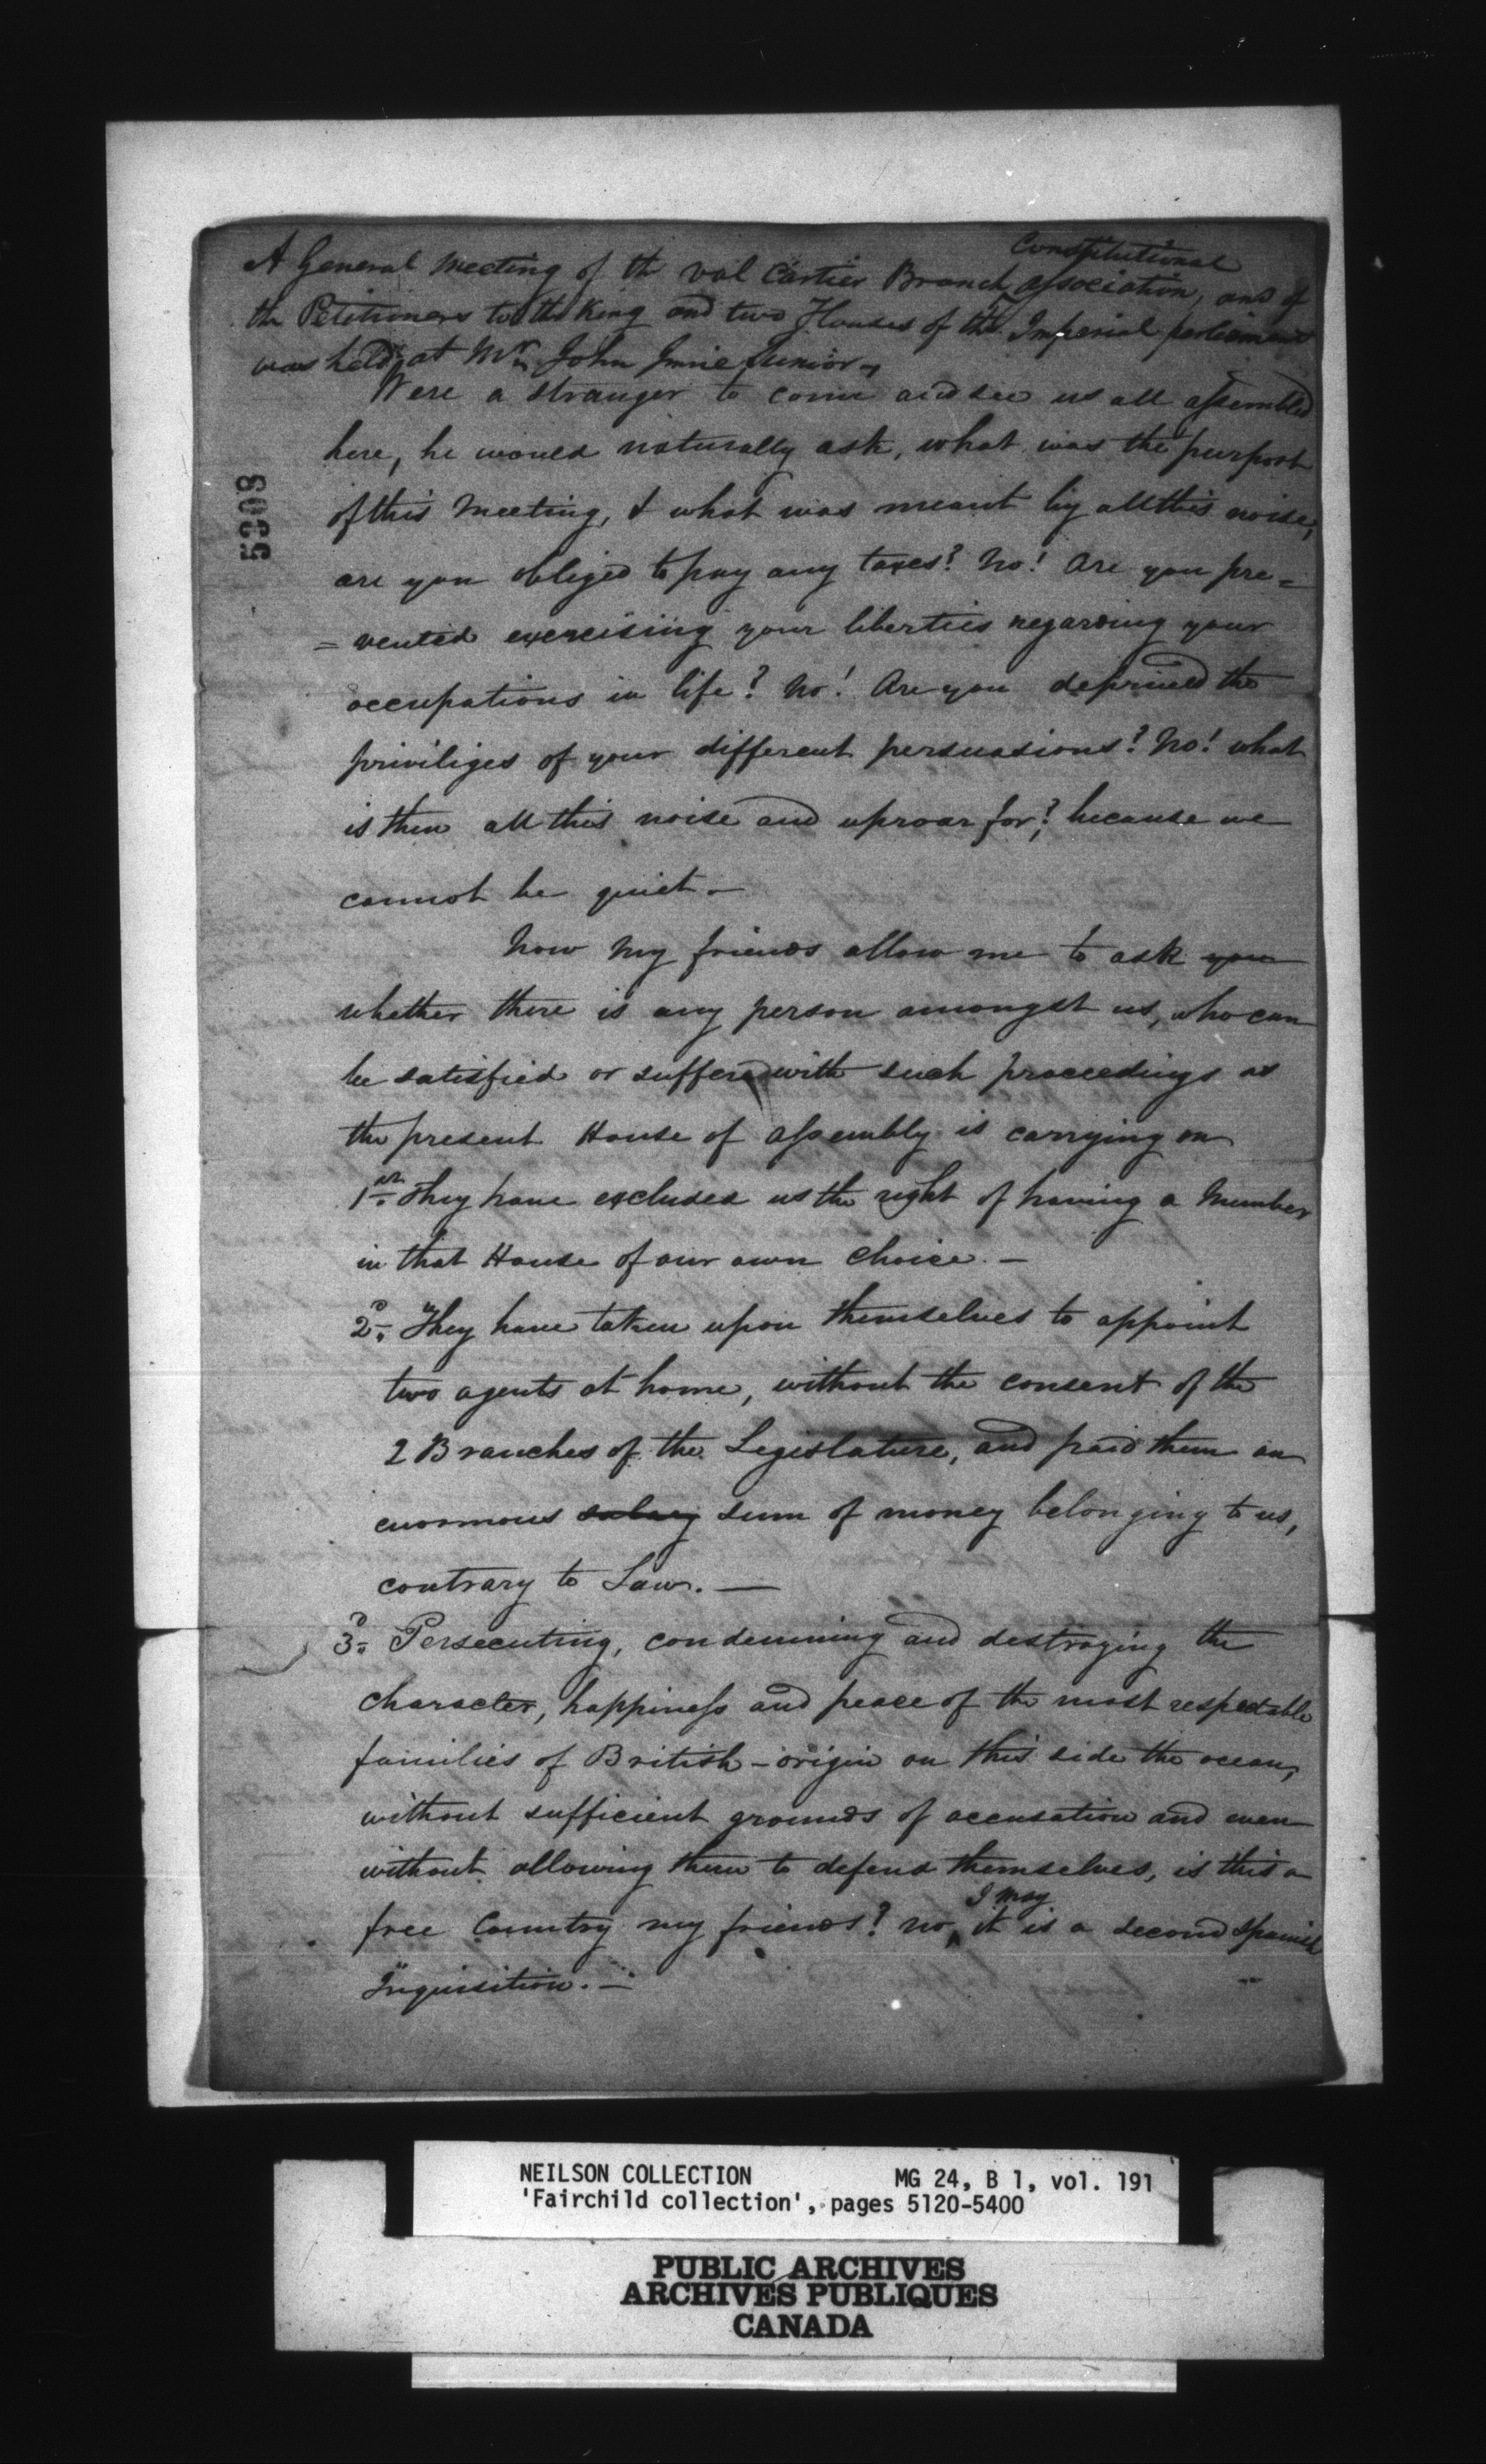 Constitutional
A General Meeting of the val Cartier Branch ^ association, and of
the Petitioners to the King and two Houses of the Imperial parliament
was held at Mr. John Imrie Junior
Were a stranger to come and see us all assembled
here, he would naturally ask, what was the purport
of this Meeting, & what was meant by all this noise;
are you obliged to pay any taxes? No! Are you pre=
=vented exercising your liberties regarding your
occupations in life? No! Are you deprived the
priviliges of your different persuasions? No! what
is then all this noise and uproar for? because we
cannot be quiet –
Now My friends allow me to ask you
whether there is any person amongst us, who can
be satisfied or suffer with such proceedings as
the present House of Assembly is carrying on
1st. They have excluded us the right of having a Member
in that House of our own Choice. –
2d. They have taken upon themselves to appoint
two agents at home, without the consent of the
2 Branches of the Legislature, and paid them an
enormous salary sum of money belonging to us,
contrary to Law. —
3d. Persecuting, condemning and destroying the
character, happiness and peace of the most respectable
families of British-origin on this side the ocean,
without sufficient grounds of accusation and even
without allowing them to defend themselves, is this a
I may
free Country my friends? no, ^ it is a second Spanish
Inquisition. –
5308
NEILSON COLLECTION MG 24, B 1, vol. 191
'Fairchild collection', pages 5120-5400
PUBLIC ARCHIVES
ARCHIVES PUBLIQUES
CANADA